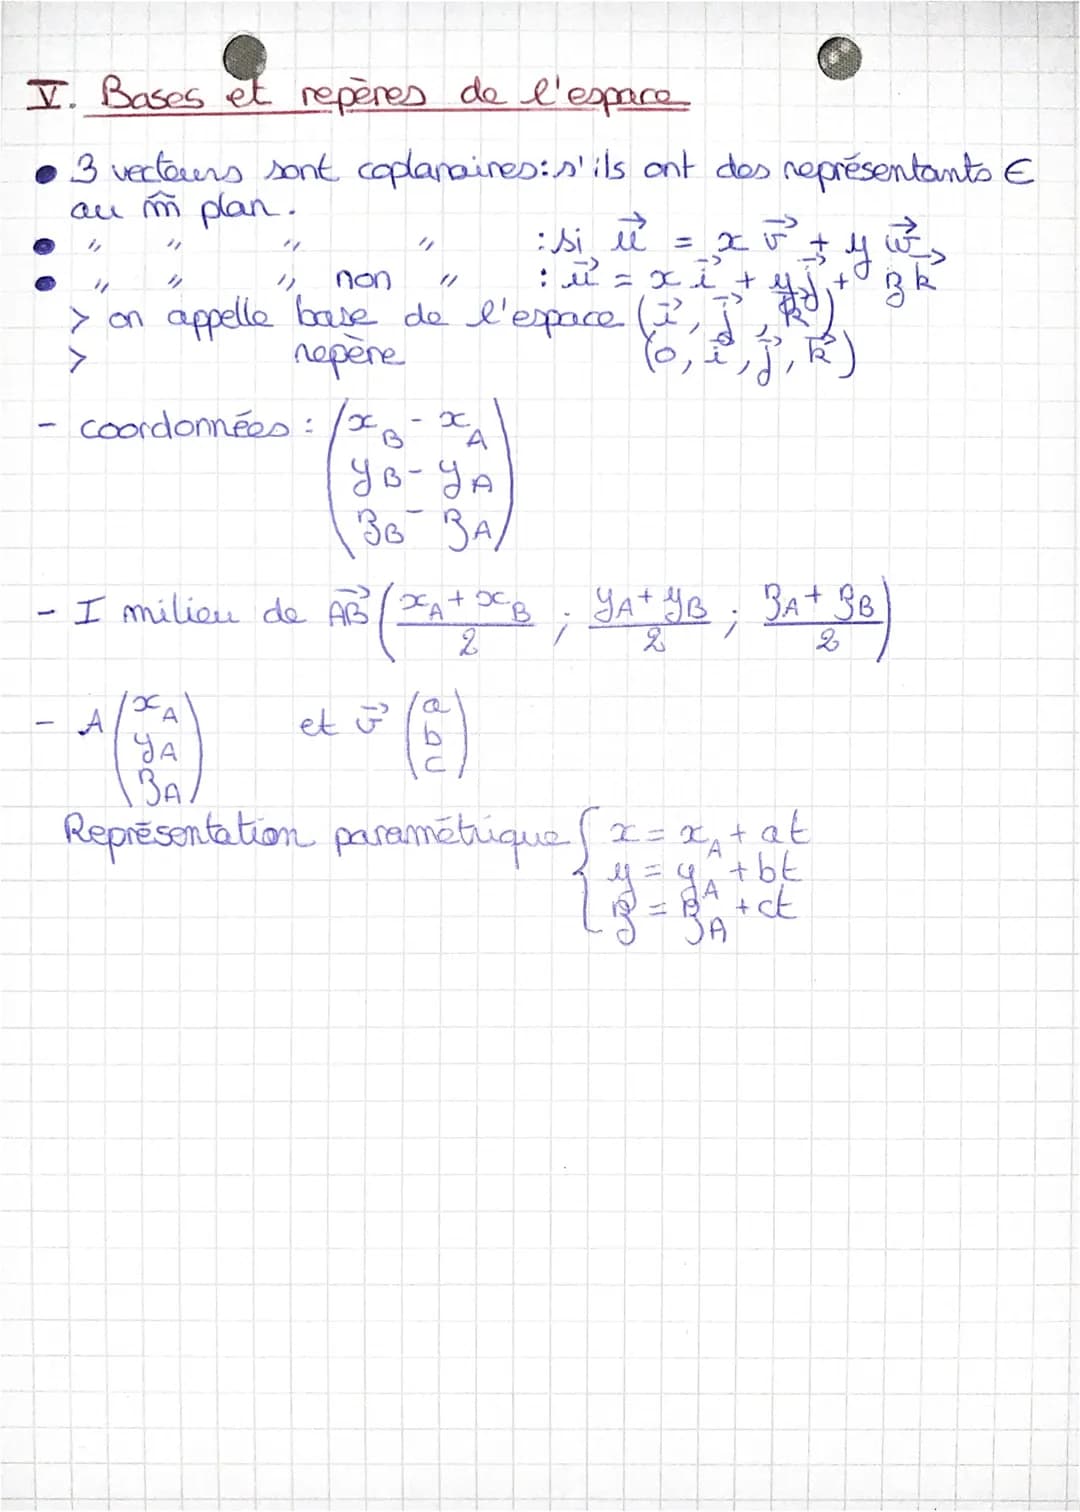 V. Bases et repères de l'espace
• 3 vecteurs sont coplanaires : s'ils ont des représentants ∈
au m̂ plan.
• " " " " : si u⃗ = x v⃗ + y w⃗
• " " " non " : u⃗ = x i⃗ + y j⃗ + z k⃗
> on appelle base de l'espace (i⃗, j⃗, k⃗)
> repère (o, i⃗, j⃗, k⃗)
- coordonnées : (x_B - x_A
y_B - y_A
z_B - z_A)
- I milieu de AB⃗ ((x_A + x_B)/2 ; (y_A + y_B)/2 ; (z_A + z_B)/2)
- A (x_A y_A z_A) et v⃗ (a b c)
Représentation paramétrique { x = x_A + at
y = y_A + bt
z = z_A + ct